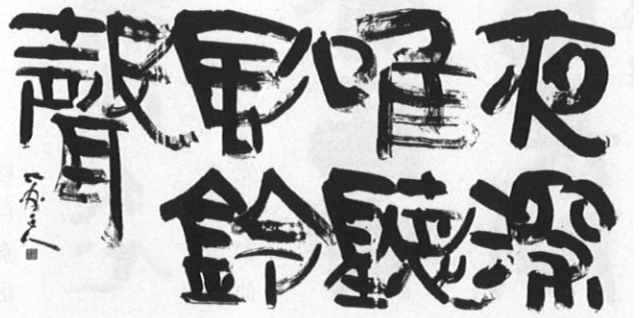 夜深
唯聽
風鈴
聲